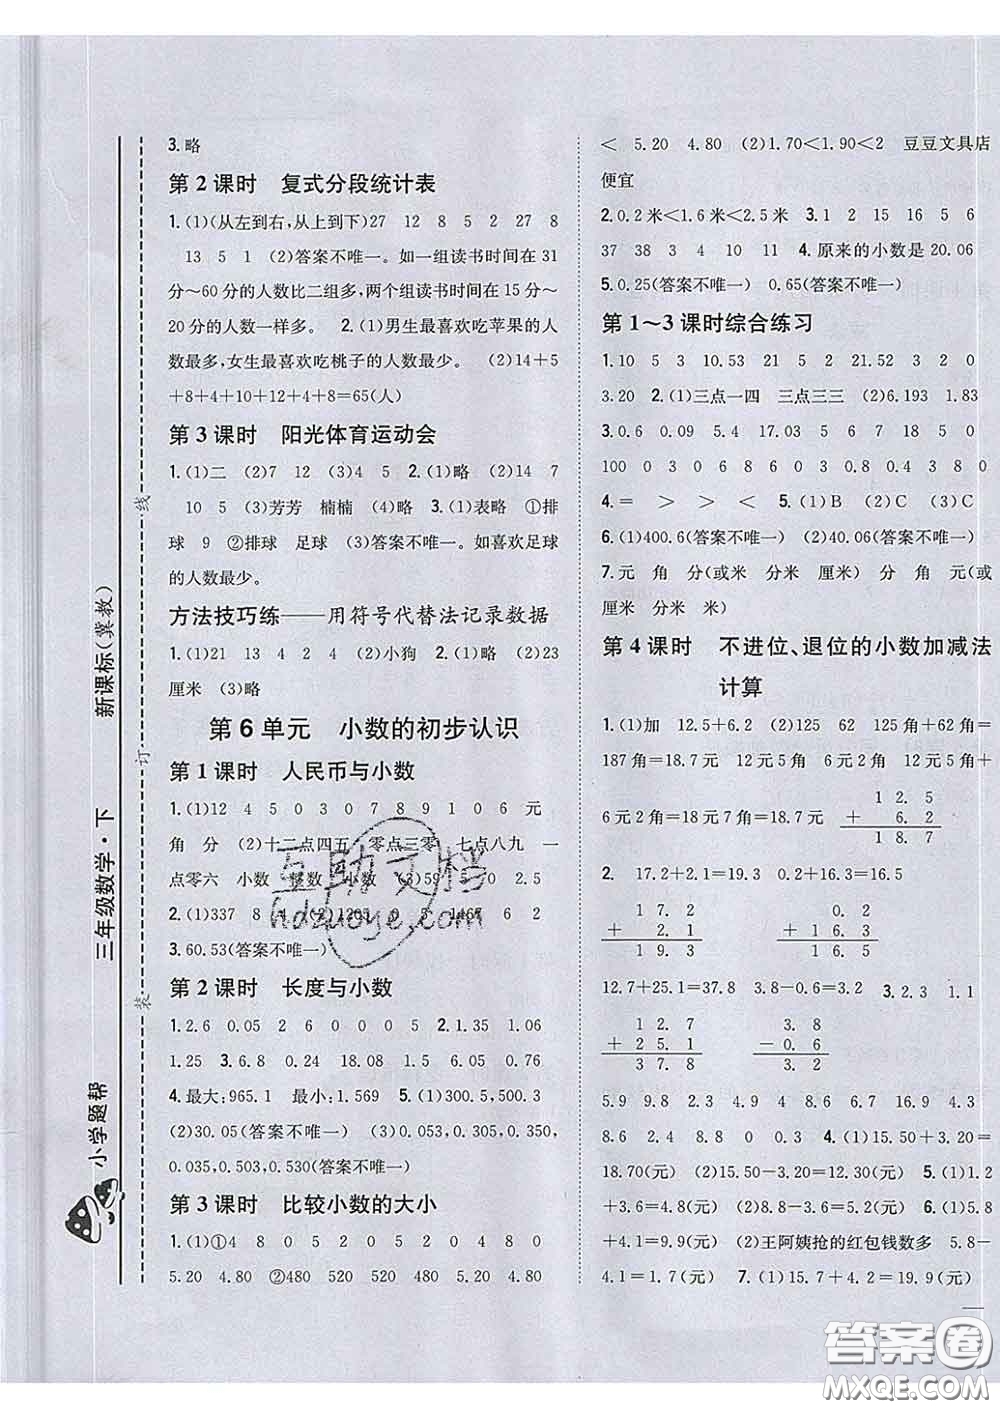 3.略
第2课时 复式分段统计表
1.(1)(从左到右,从上到下)27 12 8 5 2 27 8
13 5 1 (2)答案不唯一。如一组读书时间在31
分~60分的人数比二组多,两个组读书时间在15分~
20分的人数一样多。 2.(1)男生最喜欢吃苹果的人
数最多,女生最喜欢吃桃子的人数最少。 (2)14+5
+8+4+10+12+4+8=65(人)
第3课时 阳光体育运动会
1.(1)二 (2)7 12 (3)4 5 2.(1)略 (2)14 7
10 5 (3)芳芳 楠楠 (4)略 3.(1)表略 ①排
球 9 ②排球 足球 (3)答案不唯一。如喜欢足球
的人数最少。
方法技巧练——用符号代替法记录数据
1.(1)21 13 4 2 4 (2)小狗 2.(1)略 (2)23
厘米 (3)略
第6单元 小数的初步认识
第1课时 人民币与小数
1.(1)12 4 5 0 3 0 7 8 9 1 0 6 元
角 分 (2)十二点四五 零点三零 七点八九 一
点零六 小数 整数 小数 (3)59 7 0 2.5
2.(1)337 8 4 (2)1203 0 5 1467 6 2
3.60.53(答案不唯一)
第2课时 长度与小数
1.2.6 0.05 2 6 0 0 0 5 2.1.35 1.06
1.25 3.6.8 0.24 18.08 1.05 6.06 0.76
4.最大:965.1 最小:1.569 5.(1)300.5,500.3
(2)30.05(答案不唯一) (3)0.053,0.305,0.350,
0.035,0.503,0.530(答案不唯一)
第3课时 比较小数的大小
1.(1)①4 8 0 5 2 0 5 2 0 4 8 0
5.20 4.80 ②480 520 520 480 5.20 4.80
< 5.20 4.80 (2)1.70<1.90<2 豆豆文具店
便宜
2.0.2米<1.6米<2.5米 3.1 2 15 16 5 6
37 38 3 4 10 11 4.原来的小数是20.06
5.0.25(答案不唯一) 0.65(答案不唯一)
第1~3课时综合练习
1.10 5 3 10.53 21 5 2 21.52 3 2 0
3.20 2.(1)三点一四 三点三三 (2)6.193 1.83
3.0.6 0.09 5.4 17.03 5 6 7 18 5 0
100 0 3 0 6 8 6 3 0.8 0.4 3 8 0
4.= > > < 5.(1)B (2)C (3)C
6.(1)400.6(答案不唯一) (2)40.06(答案不唯一)
7.元 角 分(或米 分米 厘米) 分 角 元(或
厘米 分米 米)
第4课时 不进位、退位的小数加减法
计算
1.(1)加 12.5+6.2 (2)125 62 125角+62角=
187角=18.7元 12元5角=12.5元 12元5角+
6元2角=18元7角=18.7元
1 2. 5
+ 6. 2
1 8. 7
2. 17.2+2.1=19.3 0.2+16.3=16.5
1 7. 2
+ 2. 1
1 9. 3
0. 2
+ 1 6. 3
1 6. 5
12.7+25.1=37.8 3.8-0.6=3.2 3.2.3 1.1
1 2. 7
+ 2 5. 1
3 7. 8
3. 8
- 0. 6
3. 2
5.9 9.8 2.4 4.9 8.6 6.7 16.9 4.9
8.6 2.4 8.8 0 0.9 0.2 4.(1)15.50+3.20=
18.70(元) (2)15.50-3.20=12.30(元) 5.(1)1.2
+3.6=4.8(元) (2)3.6-1.2=2.4(元) 6.(1)5.8
+4.1=9.9(元) (2)王阿姨抢的红包钱数多 5.8-
4.1=1.7(元) 7.(1)15.7+4.2=19.9(元) (2)5.4
线
订
装
小学题帮 三年级数学·下 新课标(冀教)
互助文档
hdzuoye.com
答案圈
MXQE.COM